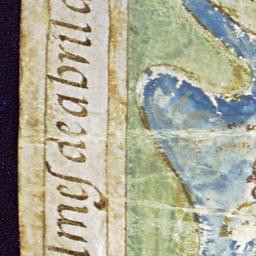 l meſ de abril d